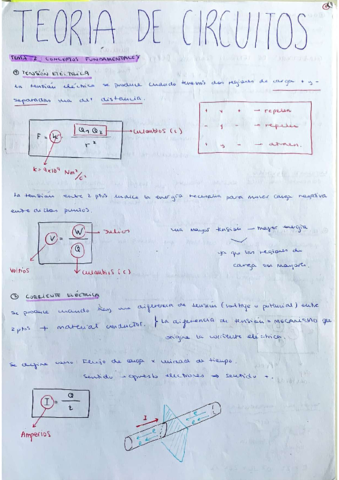 TEORIA DE CIRCUITOS
TEMA 1: CONCEPTOS FUNDAMENTALES
① TENSIÓN ELÉCTRICA
La tensión eléctrica se produce cuando tenemos dos regiones de carga + y -
separadas una det distancia.
F = k Q₁ Q₂ / r²
culombios (c)
k = 9x10⁹ Nm²/c²
+ + → repelen
- - → repelen
+ - → atraen.
La tensión entre 2 ptos indica la energía necesaria para mover carga negativa
entre dichos puntos.
V = W / Q
Julios
Voltios
culombios (c)
mayor tensión → mayor energía
regiones de
carga son mayores.
② CORRIENTE ELÉCTRICA
Se produce cuando hay una diferencia de tensión (voltaje = potencial) entre
2 ptos + material conductor.
La diferencia de tensión = mecanismo que
origina la corriente eléctrica.
Se define como: flujo de carga x unidad de tiempo.
Sentido → opuesto electrones → sentido +.
I = Q / t
Amperios
I